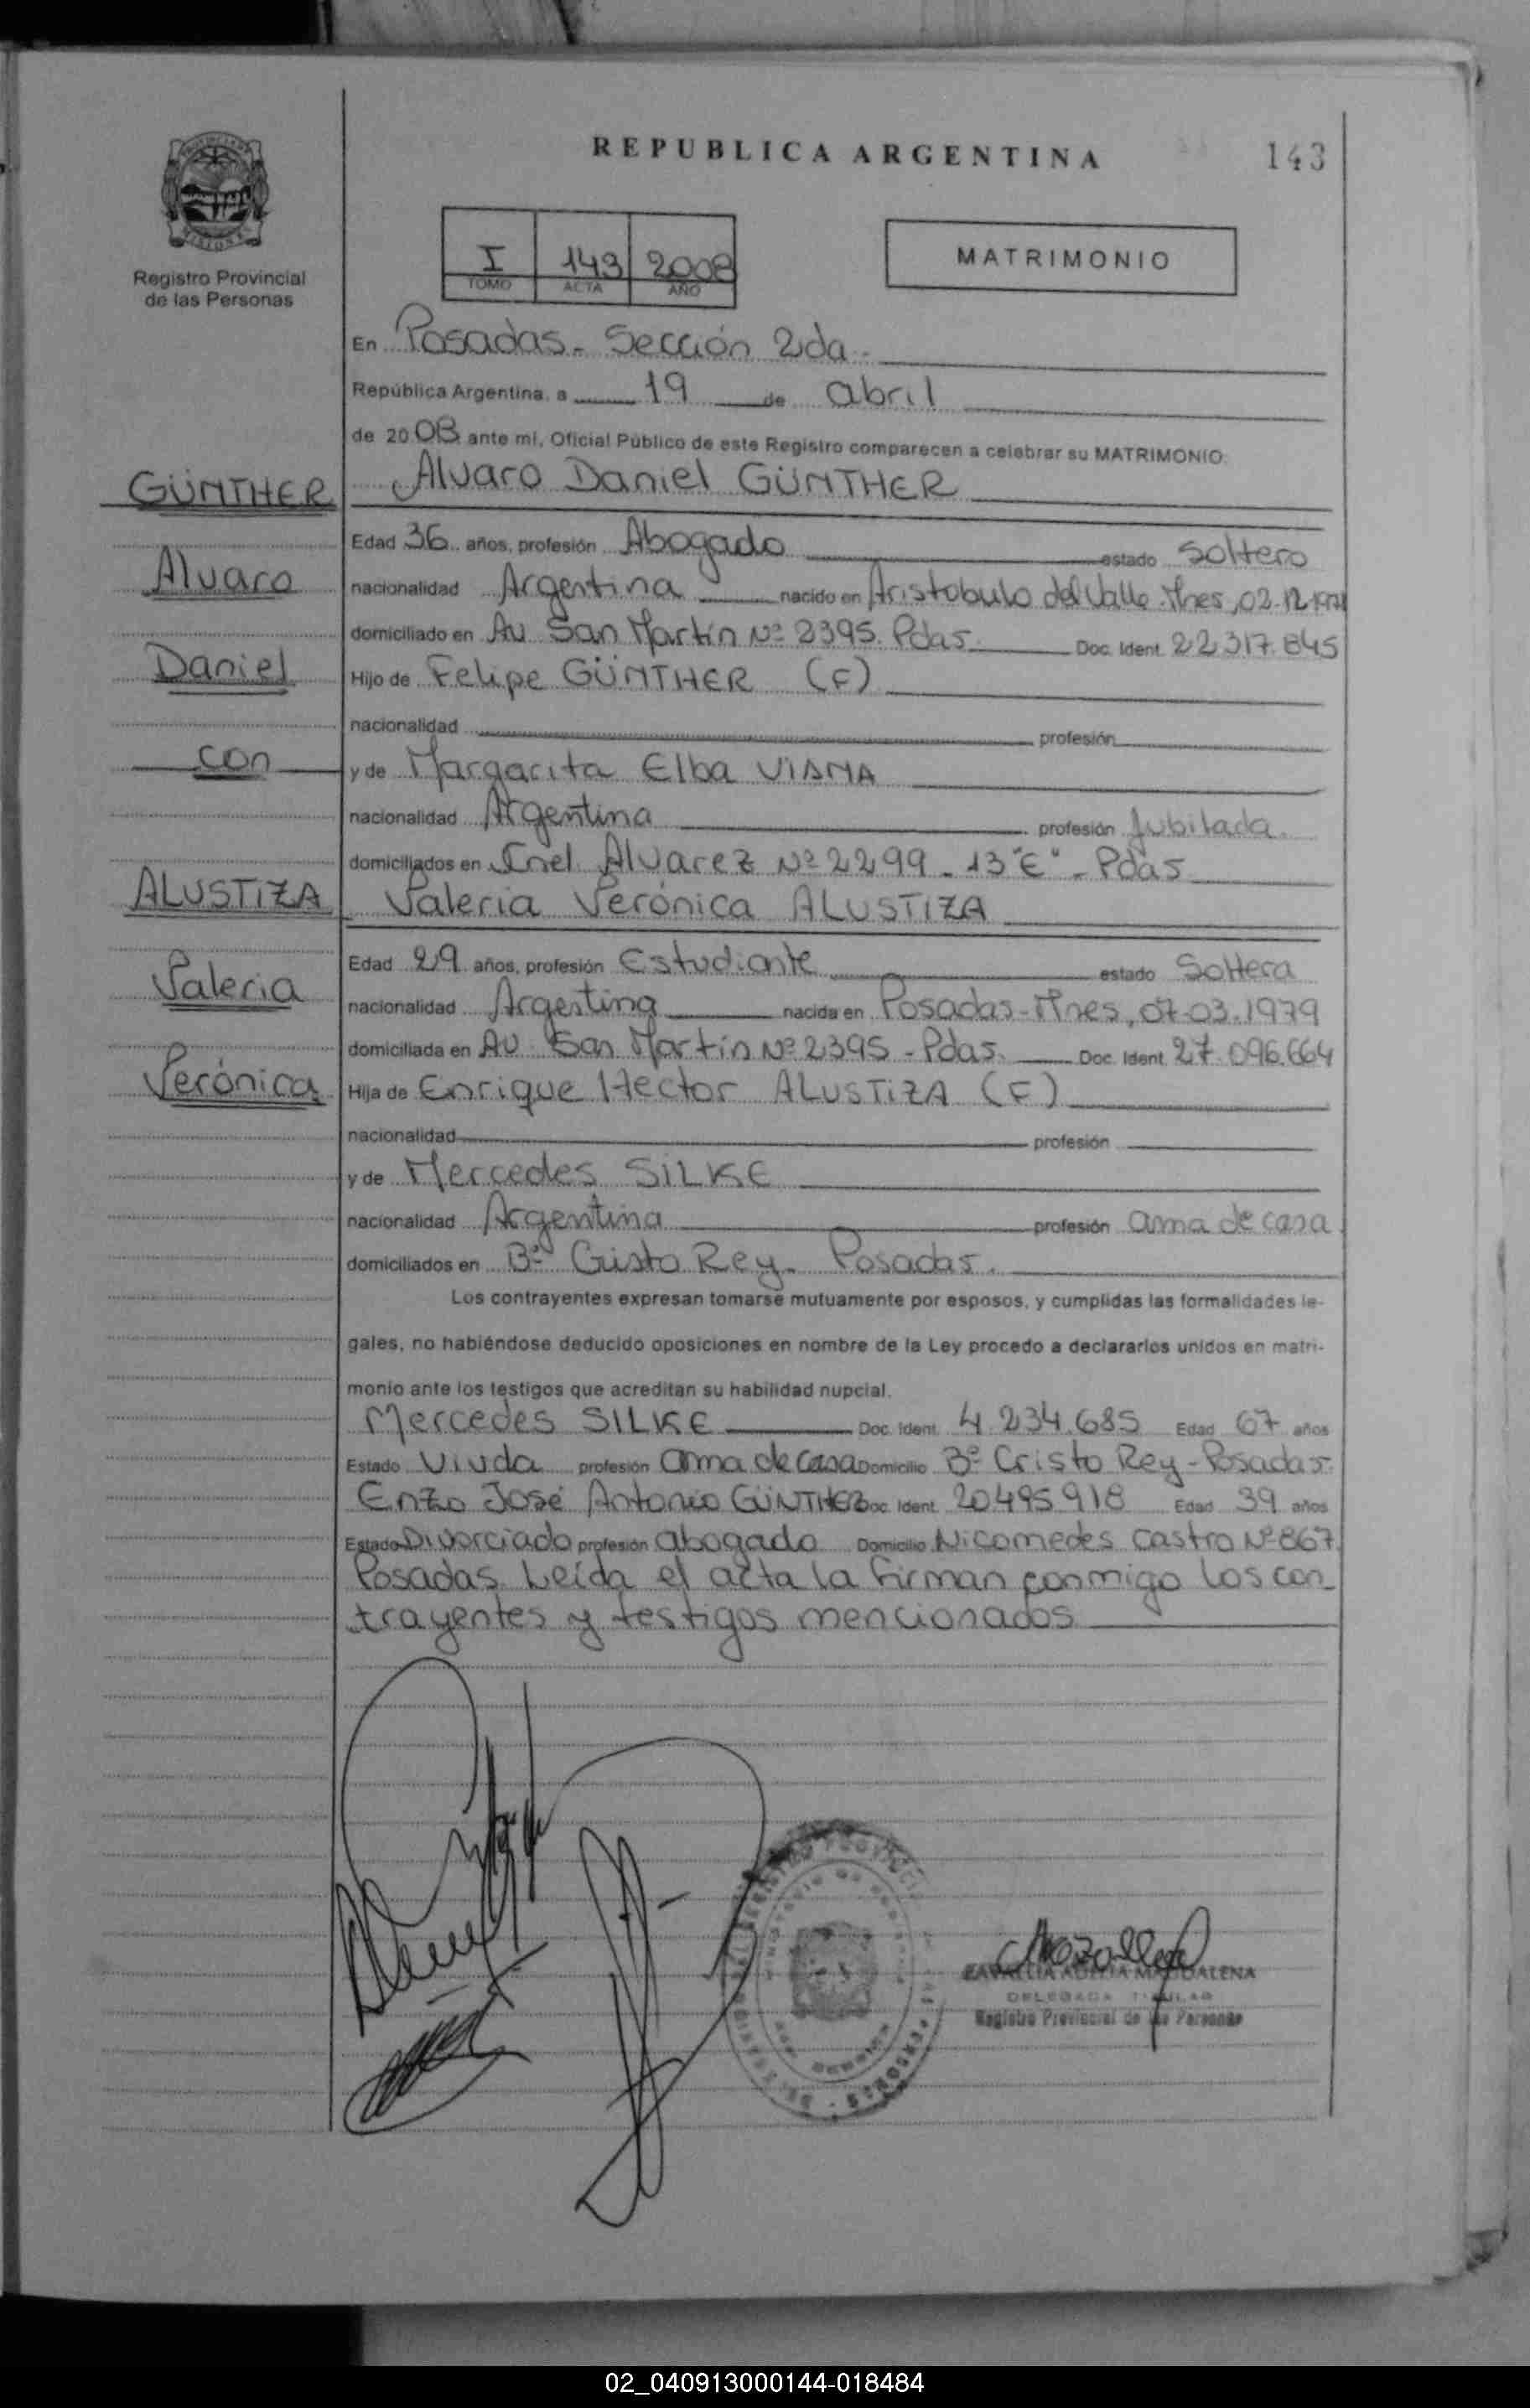 REPUBLICA ARGENTINA
143
Registro Provincial
de las Personas
I 143 2008
TOMO ACTA AÑO
MATRIMONIO
En Posadas - Sección 2da -
República Argentina, a 19 de abril
de 2008 ante mi, Oficial Público de este Registro comparecen a celebrar su MATRIMONIO:
GÜNTHER
Alvaro Daniel GÜNTHER
Edad 36 años, profesión Abogado estado Soltero
Alvaro
nacionalidad Argentina nacido en Aristobulo del Valle - Mnes, 02-12-1971
domiciliado en Av. San Martín Nº 2395. Pdas. Doc. Ident. 22.317.845
Daniel
Hijo de Felipe GÜNTHER (F)
nacionalidad profesión
con
y de Margarita Elba VIANA
nacionalidad Argentina profesión Jubilada.
domiciliados en Cnel. Alvarez Nº 2299 - 13 "E" - Pdas
ALUSTIZA
Valeria Verónica ALUSTIZA
Edad 29 años, profesión Estudiante estado Soltera
Valeria
nacionalidad Argentina nacida en Posadas - Mnes, 07-03-1979
domiciliada en Av. San Martín Nº 2395 - Pdas. Doc. Ident. 27.096.664
Verónica
Hija de Enrique Hector ALUSTIZA (F)
nacionalidad profesión
y de Mercedes SILKE
nacionalidad Argentina profesión ama de casa.
domiciliados en Bº Cristo Rey - Posadas.
Los contrayentes expresan tomarse mutuamente por esposos, y cumplidas las formalidades le-
gales, no habiéndose deducido oposiciones en nombre de la Ley procedo a declararlos unidos en matri-
monio ante los testigos que acreditan su habilidad nupcial.
Mercedes SILKE Doc. Ident. 4.234.685 Edad 67 años
Estado Viuda profesión ama de casa Domicilio Bº Cristo Rey - Posadas.
Enzo José Antonio GÜNTHER Doc. Ident. 20495918 Edad 39 años
Estado Divorciado profesión abogado Domicilio Nicomedes Castro Nº 867.
Posadas. Leída el acta la firman conmigo los con-
trayentes y testigos mencionados
MAGDALENA
DELEGADA TITULAR
Registro Provincial de las Personas
02_040913000144-018484